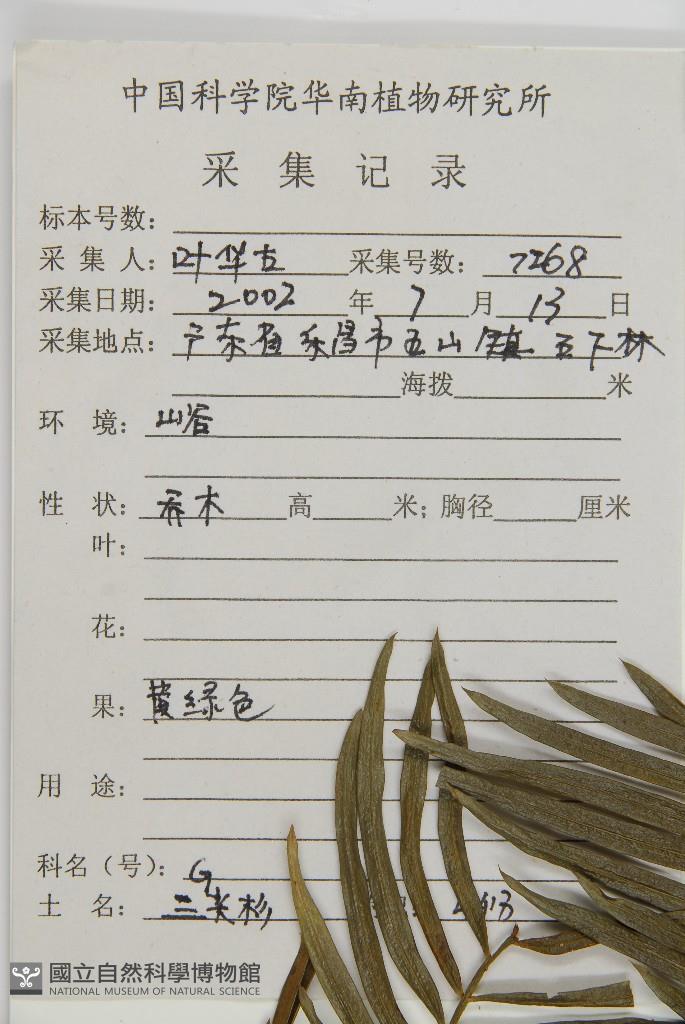 中国科学院华南植物研究所
采集记录
标本号数：
采集人：叶华古 采集号数：7268
采集日期：2002年7月13日
采集地点：广东省乐昌市五山镇王下林
海拔 米
环境：山谷
性状：乔木 高 米；胸径 厘米
叶：
花：
果：黄绿色
用途：
科名（号）：G
土名：三尖杉
國立自然科學博物館
NATIONAL MUSEUM OF NATURAL SCIENCE